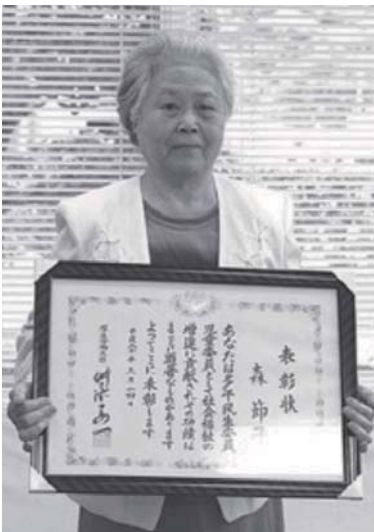 表彰状
森 節
あなたは多年民生委員
児童委員として社会福祉の
増進に貢献されその功績は
まことに顕著なものがあります
よってここに表彰します
平成 年 月 日
厚生労働大臣